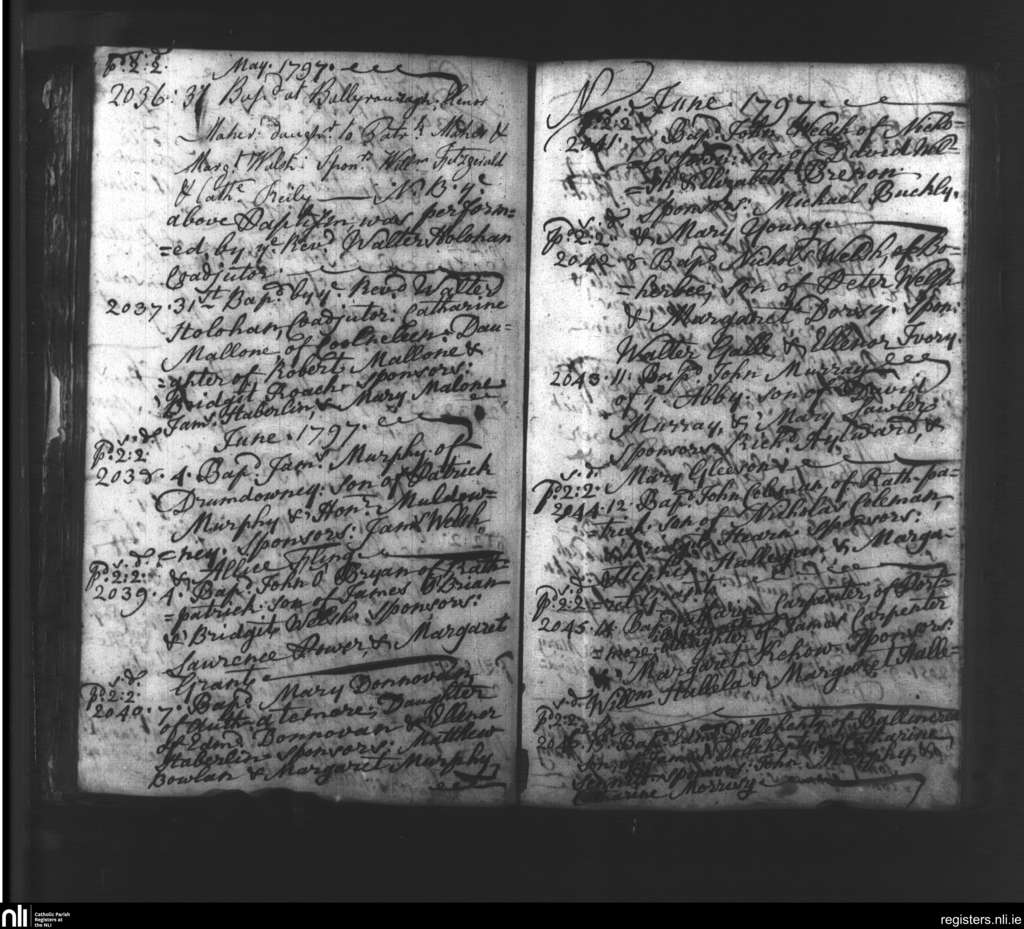 P: 2: 2:
May. 1797.
2036: 31 Bapd at Ballyrouragh: Elenor
Maher: daughr to Patrk Maher &
Margt Welsh: Sponrs Willm Fitzgerald
& Cathe Reily — N. B. ye
above Baptizm was perform=
=ed by ye Revd Walter Holohan
Coadjutor.
2037. 31st Bapd by ye Revd Walter
Holohan, Coadjutor: Catharine
Mallone of : Dau=
=ghter of Robert Mallone &
Bridgit Roach Sponsors:
Jams Haberlin, & Mary Malone
s. d.
June. 1797.
P: 2: 2:
2038. 4. Bapd Jams Murphy of
Drumdowney: son of Patrick
Murphy & Honr Muldow=
=ney. Sponsors: Jams Welsh
s. d. & Allice Fling
P: 2: 2:
2039. 4. Bapd John O Bryan of Rath=
=patrick: son of James O Brian
& Bridgit Welsh Sponsors:
Lawrence Power & Margaret
s. d. Grant
P: 2: 2:
2040. 7. Bapd Mary Donnovan
of : Daughter
of Edmd Donnovan & Ellenor
Haberlin Sponsors: Matthew
Bowlan & Margaret Murphy
June 1797.
P: 2: 2:
2041. 7. Bapd John Welsh of Nicho=
: son of David Wel=
=sh & Elizabeth Brenon
s. d. Sponsors: Michael Buckly.
P: 2: 2: & Mary Young
2042 8 Bapd Nichols Welsh, of Bo=
=herbee, son of Peter Welsh
& Margaret Dorsy. Spon:
Walter Galle & Ellenor Ivory.
2043. 11. Bapd John Murray
of ye Abby: son of David
Murray, & Mary Lawler
Sponsors Richd Aylward, &
s. d. Mary Gleeson
P: 2: 2:
2044. 12. Bapd John Coleman of Rath=pa=
=trick, son of Nicholas Coleman,
& Hearn Sponsors:
Stephen Hallegan & Marga=
s. d. =ret Grant
P: 2: 2
2045. 14. Bapd Carpenter of Port=
=more: daughter of James Carpenter
& Margaret Kehow Sponsors:
s. d. Willm Hallela & Margaret Halle=
P: 2: 2:
2046. 15. Bapd Edmd Dolleherty of Ballincrea
son of James Dolleherty & Catharine
Sponsors: John Murphy, &
Catharine Morrissy
nli
Catholic Parish
Registers at
the NLI
registers.nli.ie